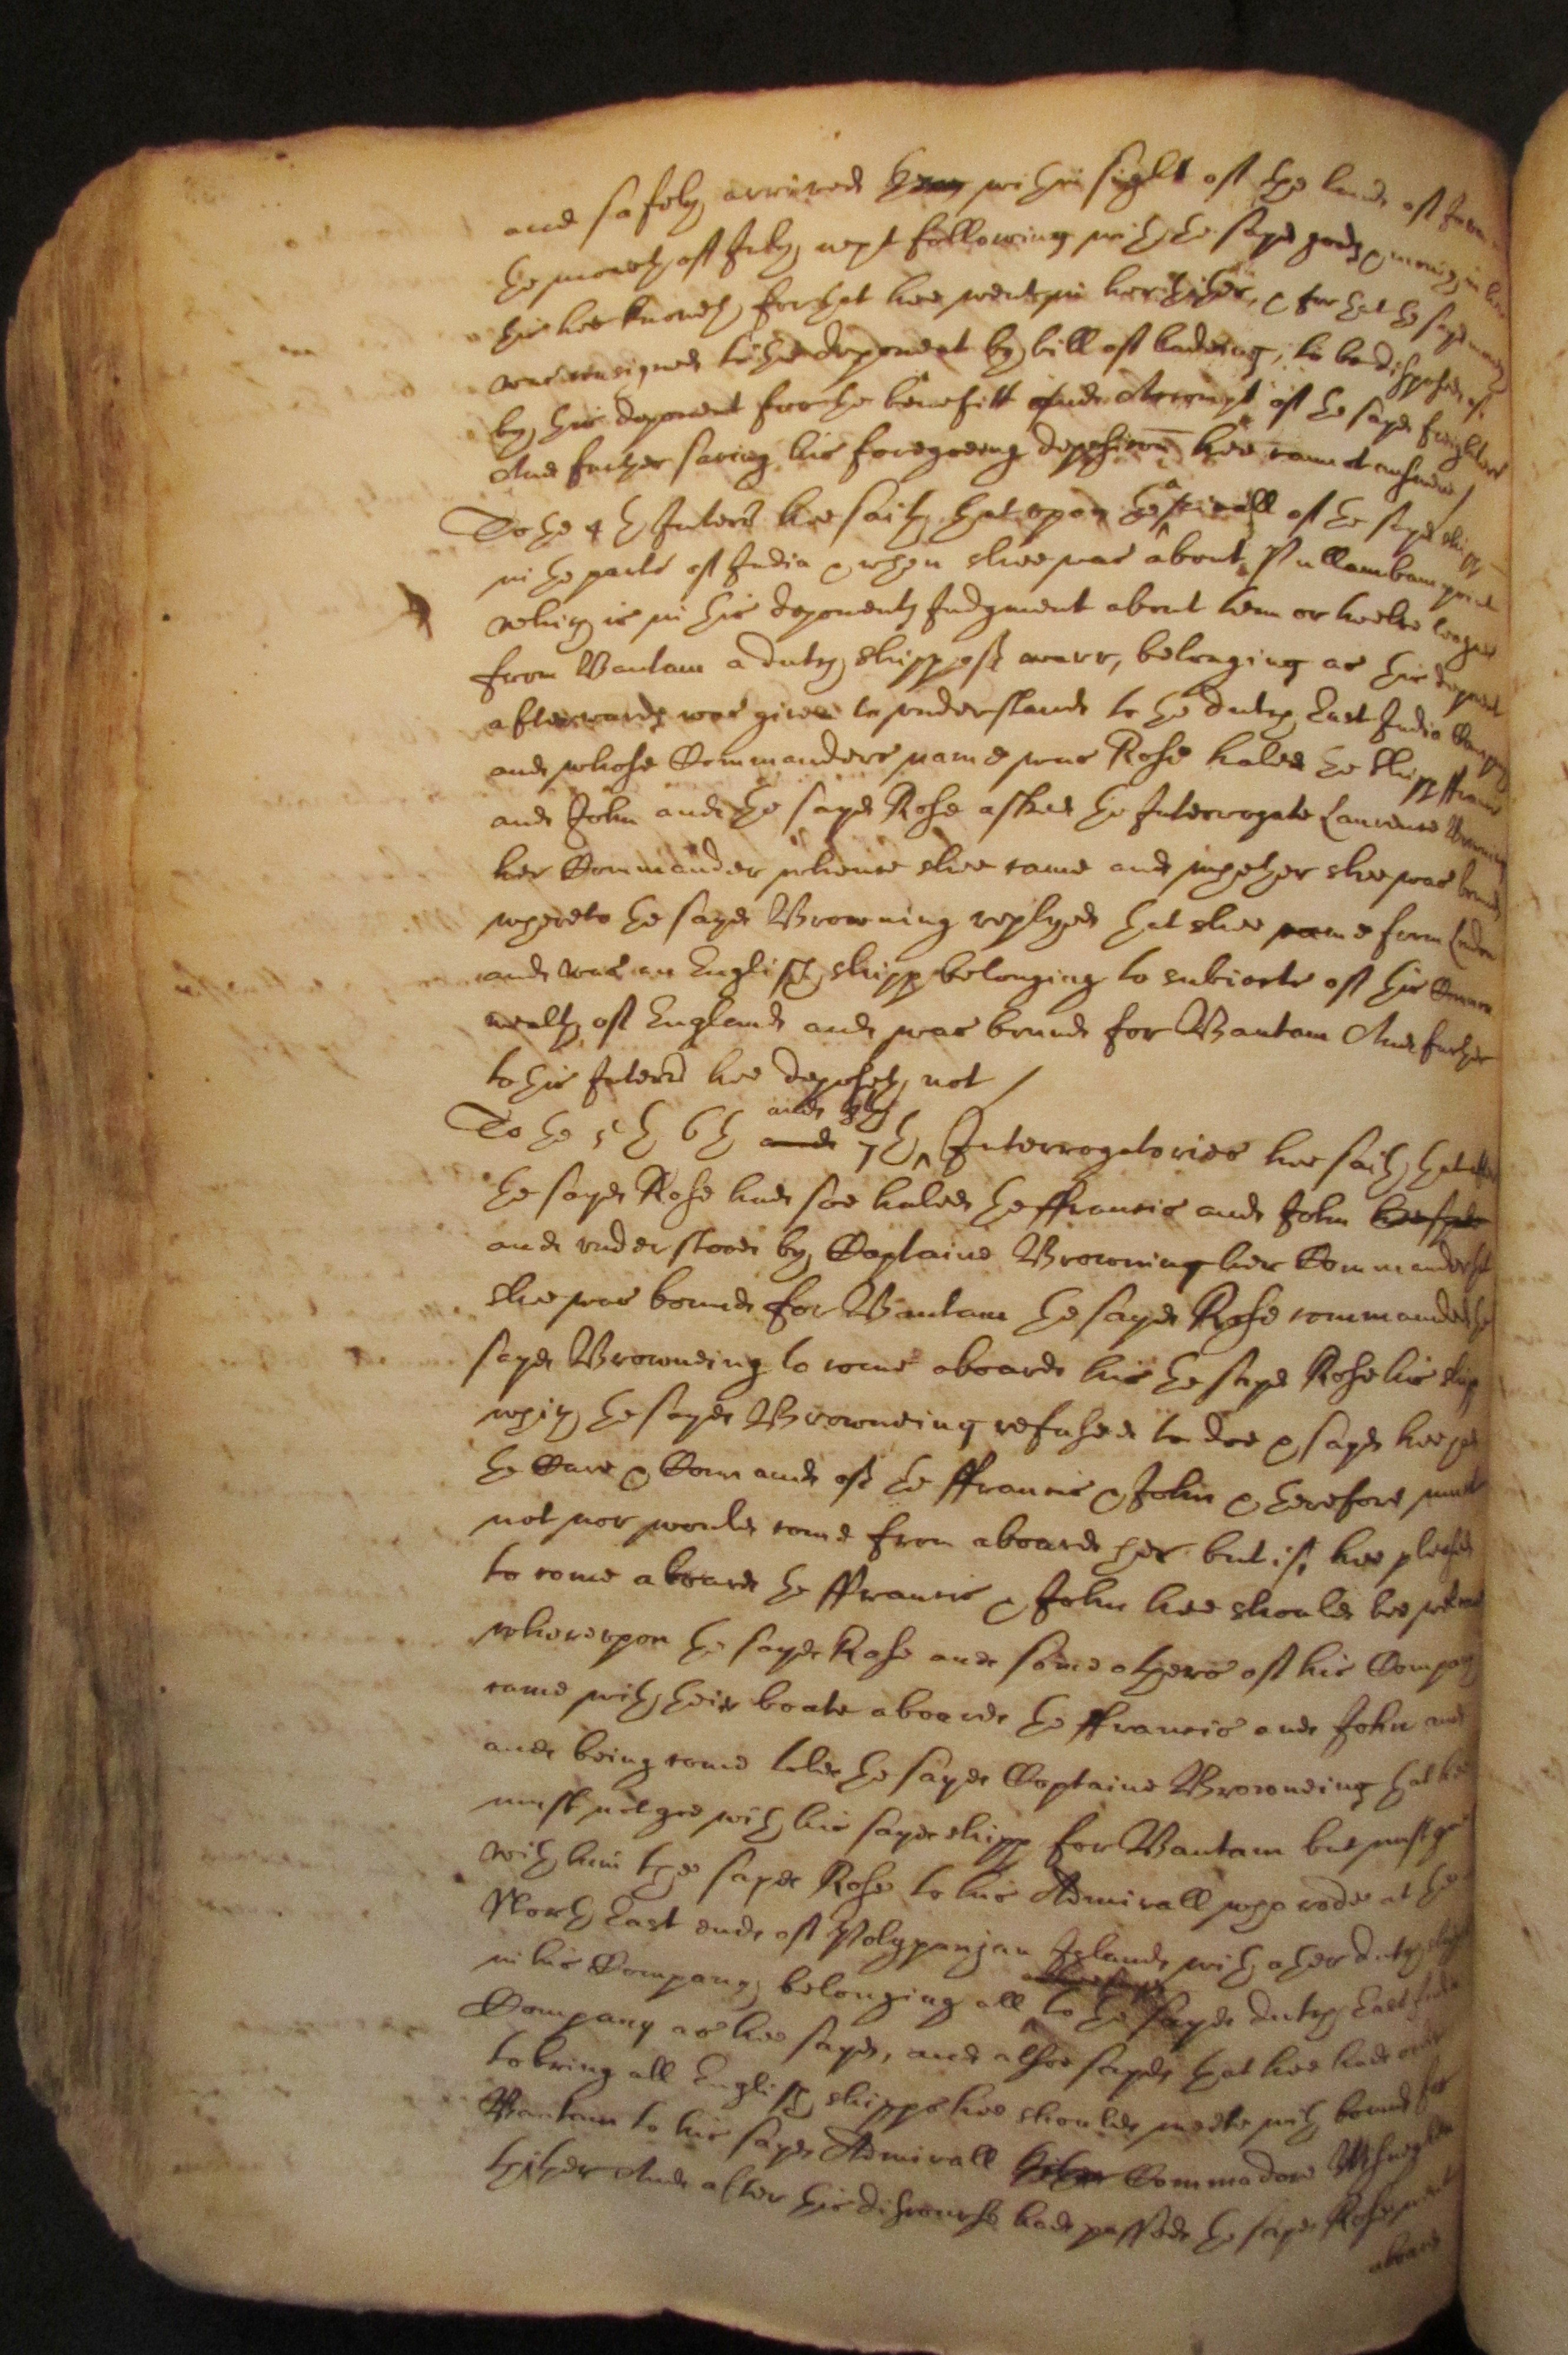 and safely arrived within sight of the land of Java
the moneth of July next following with the sayd goods & money in her
this hee knoweth for that hee went in her thither, & for that the sayd money
was consigned to this deponent by bill of ladeing, to be disposed of
by this deponent for the benefitt and Accompt of the sayd freighters
And further saving his foregoeing deposition hee cannot answere /
To the 4th Interr hee saith that upon the arrivall of the sayd shipp
in the parts of India & when shee was about Pullambam point
which is in this deponents Judgment about tenn or twelve leagues
from Bantam a dutch shipp of warr, belonging as this deponent
afterwards was given to understand to the dutch East India Company
and whose Commanders name was Rose haled the shipp ffrancis
and John and the sayd Rose asked the Interrogate Laurence Browning
her Commander whence shee came and whether shee was bound
whereto the sayd Browning replyed that shee came from London
and was an English shipp belonging to subiects of this Common
wealth of England and was bound for Bantam And further
to this Interr hee deposeth not /
To the 5th 6th and 7th and 8th Interrogatories hee saith that after
the sayd Rose had soe haled the ffrancis and John
and understood by Captaine Browning her Commander that
shee was bound for Bantam the sayd Rose commanded the
sayd Browneing to come aboard his the sayd Rose his shipp
which the sayd Browneing refused to doe & sayd hee had
the Care & Command of the ffrancis & John & therefore must
not nor would come from aboard her but if hee pleased
to come aboard the ffrancis & John hee should bee welcome
whereupon the sayd Rose and some others of his Company
came with their boate aboard the ffrancis and John and
and being come told the sayd Captaine Browneing that hee
must not goe with his sayd shipp for Bantam but must goe
with him the sayd Rose to his Admirall who rode at the
North East end of Polypanjan Island with other dutch shipps
in his Company belonging all to the sayd dutch East India
Company as hee sayd, and alsoe sayd that hee had order
to bring all English shipps hee should meete with bound for
Bantam to his sayd Admirall Commadore
thither And after this discourse had passed the sayd Rose went
aboard